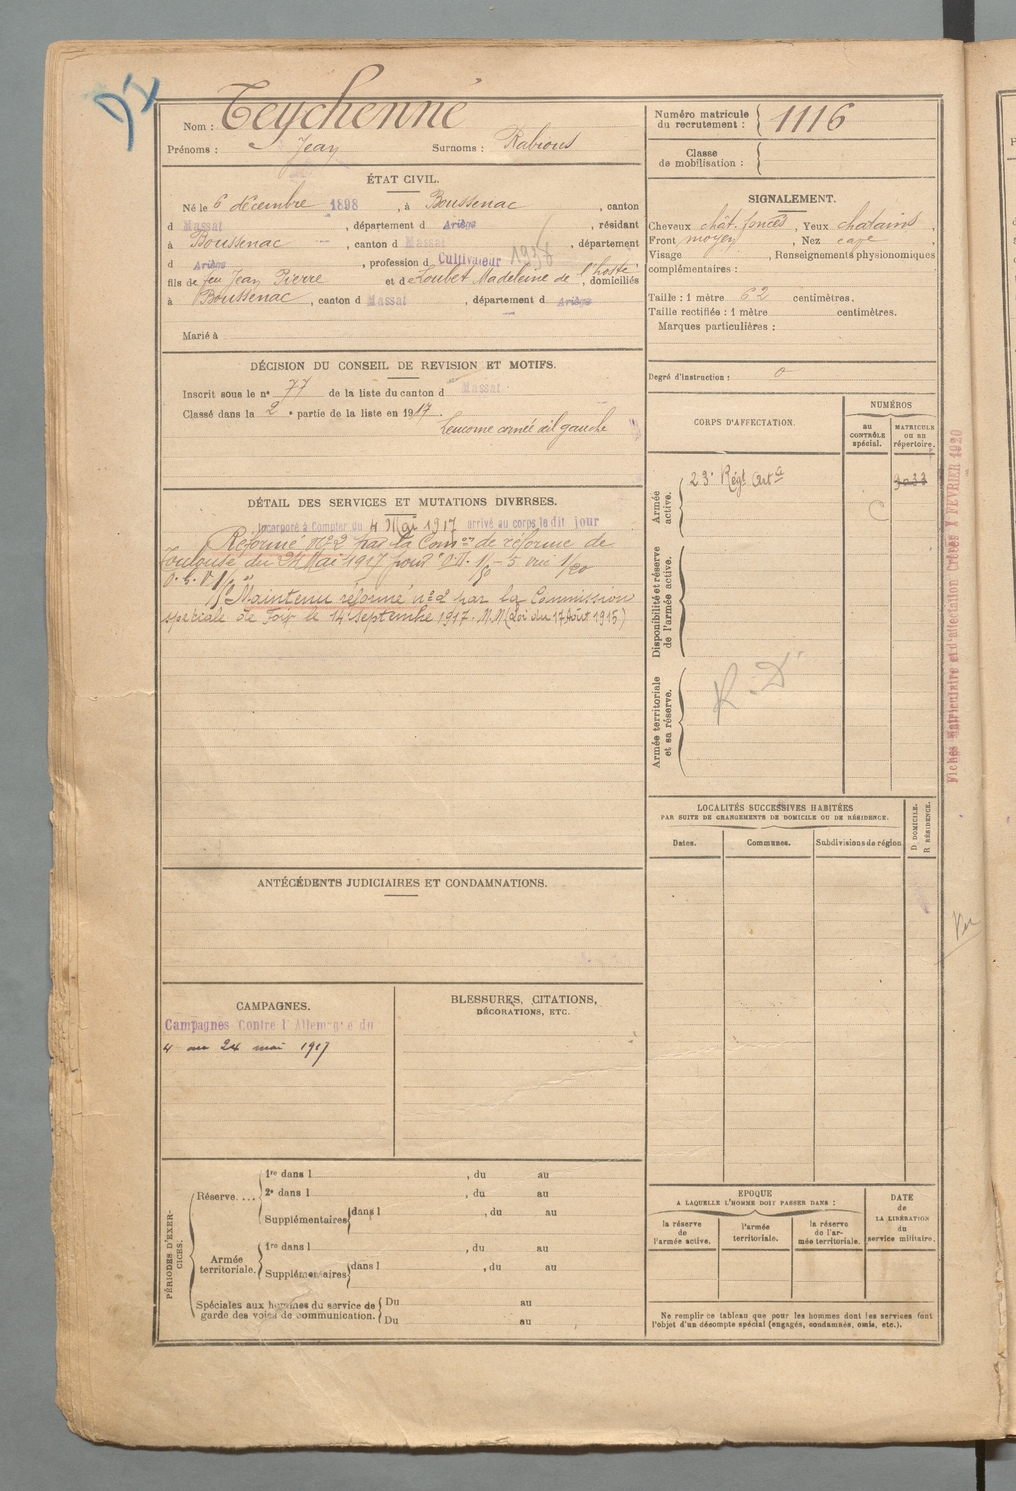 Nom : Teychenné
Prénoms : Jean Surnoms : Rabious
Numéro matricule du recrutement : 1116
Classe de mobilisation :
ÉTAT CIVIL.
Né le 6 décembre 1898, à Boussenac, canton
d Massat, département d Ariège, résidant
à Boussenac, canton d Massat, département
d Ariège, profession d Cultivateur 1938
fils de feu Jean Pierre et de Loubet Madeleine de l'hosté, domiciliés
à Boussenac, canton d Massat, département d Ariège
Marié à
SIGNALEMENT.
Cheveux chât. foncés, Yeux chatains,
Front moyen, Nez cave,
Visage , Renseignements physionomiques
complémentaires :
Taille : 1 mètre 62 centimètres.
Taille rectifiée : 1 mètre centimètres.
Marques particulières :
Degré d'instruction : 0
DÉCISION DU CONSEIL DE REVISION ET MOTIFS.
Inscrit sous le n° 77 de la liste du canton d Massat
Classé dans la 2e partie de la liste en 1917.
Leucome cornée œil gauche
DÉTAIL DES SERVICES ET MUTATIONS DIVERSES.
Incorporé à Compter du 4 Mai 1917 arrivé au corps le dit jour
Réformé N°2 par la Comon de réforme de
Toulouse du 24 Mai 1917 pour
Maintenu réformé n°2 par la Commission
spéciale de Foix le 14 septembre 1917. N.M (Loi du 17 Août 1915)
CORPS D'AFFECTATION.
NUMÉROS
au CONTRÔLE spécial.
MATRICULE ou au répertoire.
Armée active.
23e Régt Artie
C
Disponibilité et réserve de l'armée active.
Armée territoriale et sa réserve.
R. D
Fiches Matriculaire et d'affectation Créées X FEVRIER 1920
LOCALITÉS SUCCESSIVES HABITÉES
PAR SUITE DE CHANGEMENTS DE DOMICILE OU DE RÉSIDENCE.
Dates.
Communes.
Subdivisions de région
D DOMICILE.
R RÉSIDENCE.
ANTÉCÉDENTS JUDICIAIRES ET CONDAMNATIONS.
CAMPAGNES.
Campagnes Contre l'Allemagne du
4 au 24 mai 1917
BLESSURES, CITATIONS,
DÉCORATIONS, ETC.
Vu
PÉRIODES D'EXERCICES.
Réserve....
1re dans l , du au
2e dans l , du au
Supplémentaires dans l , du au
Armée territoriale.
1re dans l , du au
Supplémentaires dans l , du au
Spéciales aux hommes du service de garde des voies de communication.
Du au
Du au
EPOQUE
A LAQUELLE L'HOMME DOIT PASSER DANS :
la réserve de l'armée active.
l'armée territoriale.
la réserve de l'armée territoriale.
DATE de LA LIBÉRATION du service militaire.
Ne remplir ce tableau que pour les hommes dont les services font
l'objet d'un décompte spécial (engagés, condamnés, omis, etc.).